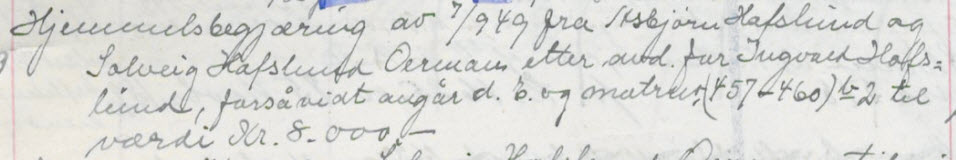 Hjemmelsbegjæring av 7/949 fra Asbjørn Hafslund og
Solveig Hafslund Oerman etter avd. far Ingvald Hafs=
lund, forsåvidt angår d. e. og matrnr. (457-460) b 2 til
værdi Kr. 8.000,-